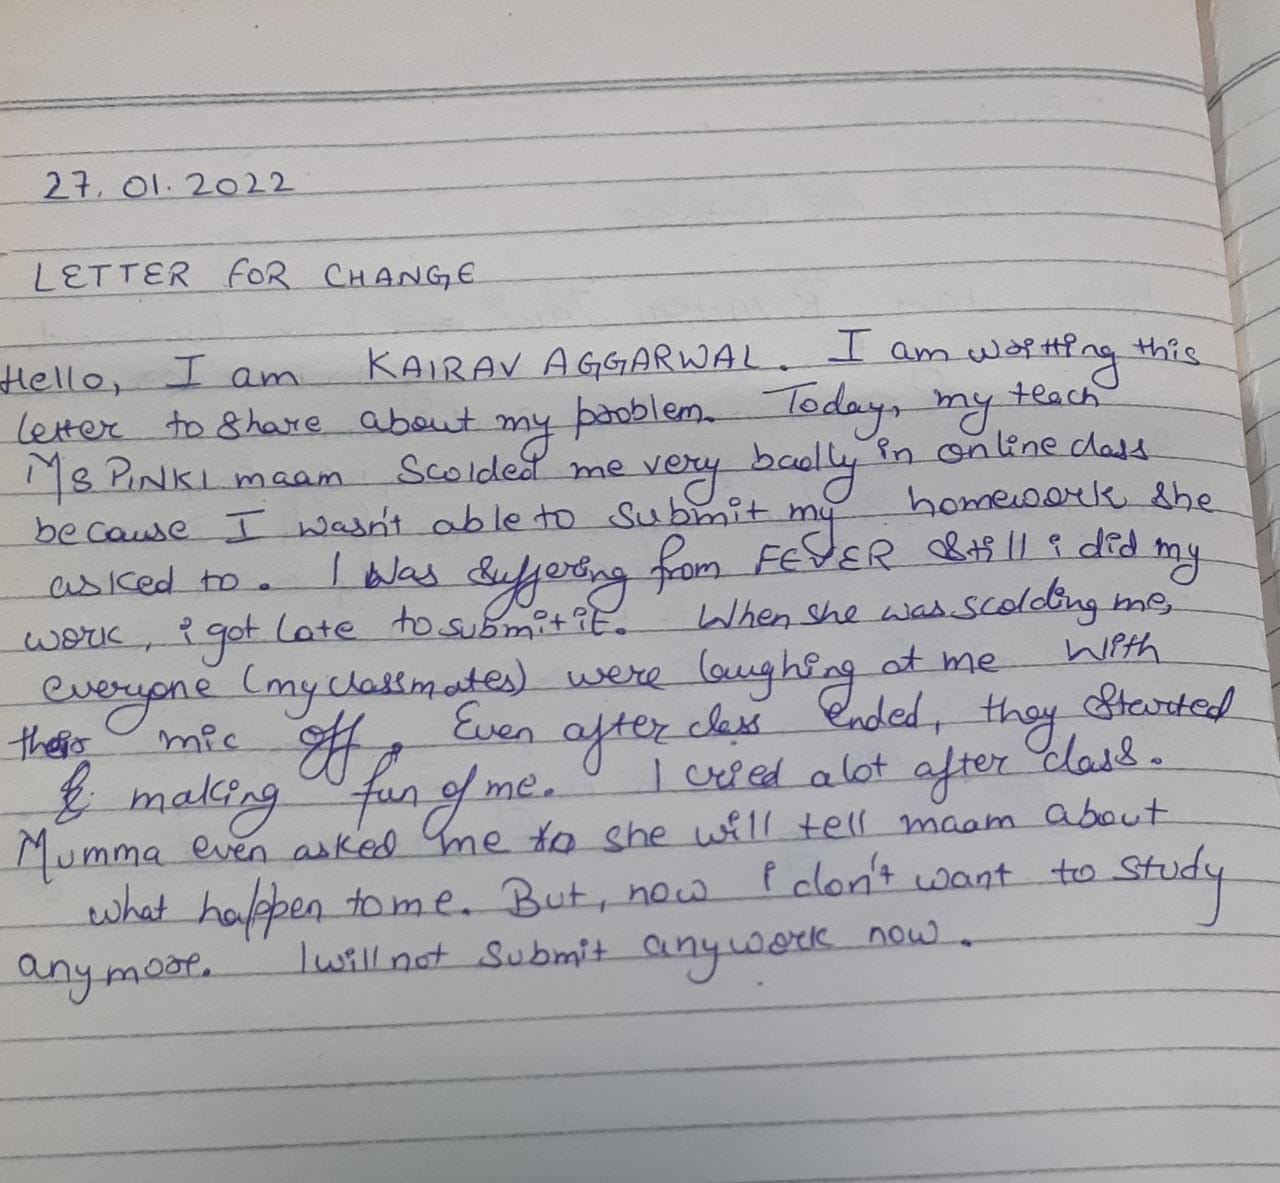 27.01.2022
LETTER FOR CHANGE
Hello, I am KAIRAV AGGARWAL. I am writting this
letter to share about my problem. Today, my teach
Ms PINKI maam scolded me very badly in online class
because I wasn't able to submit my homework she
asked to. I was suffering from FEVER still i did my
work, i got late to submit it. When she was scolding me,
everyone (my classmates) were laughing at me with
their mic off. Even after class ended, they started
making fun of me. I cried a lot after class.
Mumma even asked me to she will tell maam about
what happen to me. But, now i don't want to study
anymore. I will not submit any work now.